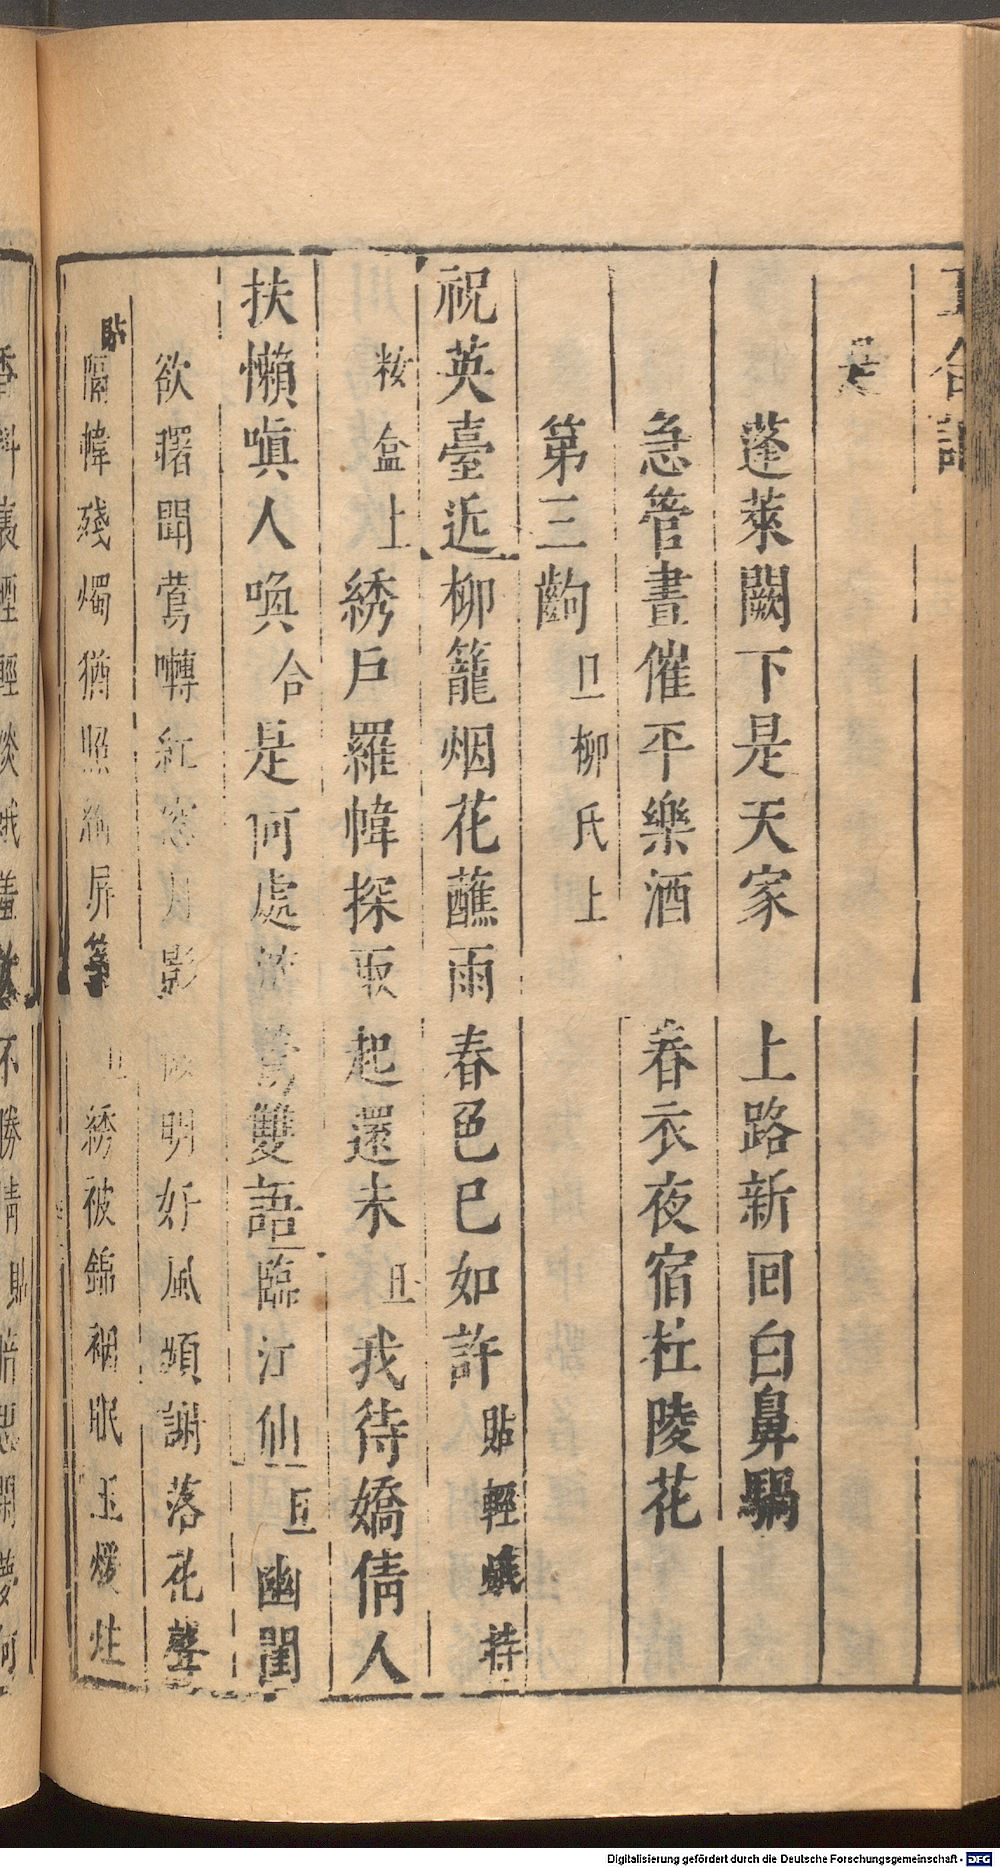 是
蓬萊闕下是天家　上路新回白鼻騧
急管晝催平樂酒　春衣夜宿杜陵花
第三齣　旦柳氏上
祝英臺近柳籠烟花蘸雨春色已如許貼輕蛾持
妝盒上繡戶羅幃探取起還未旦我待嬌倩人
扶懶嗔人喚合是何處鶯雙語臨江仙旦幽閨
欲曙聞鶯囀紅窓月影明好風頻謝落花聲
貼隔幃殘燭猶照綺屏箏旦繡被錦裀眠玉煖炷
Digitalisierung gefördert durch die Deutsche Forschungsgemeinschaft - DFG